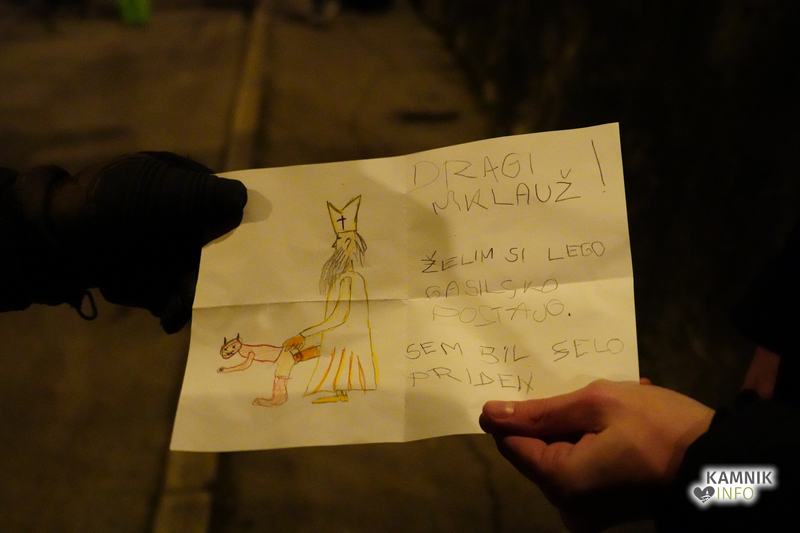 DRAGI
MIKLAUŽ!
ŽELIM SI LEGO
GASILSKO
POSTAJO.
SEM BIL ZELO
PRIDEN
KAMNIK
INFO